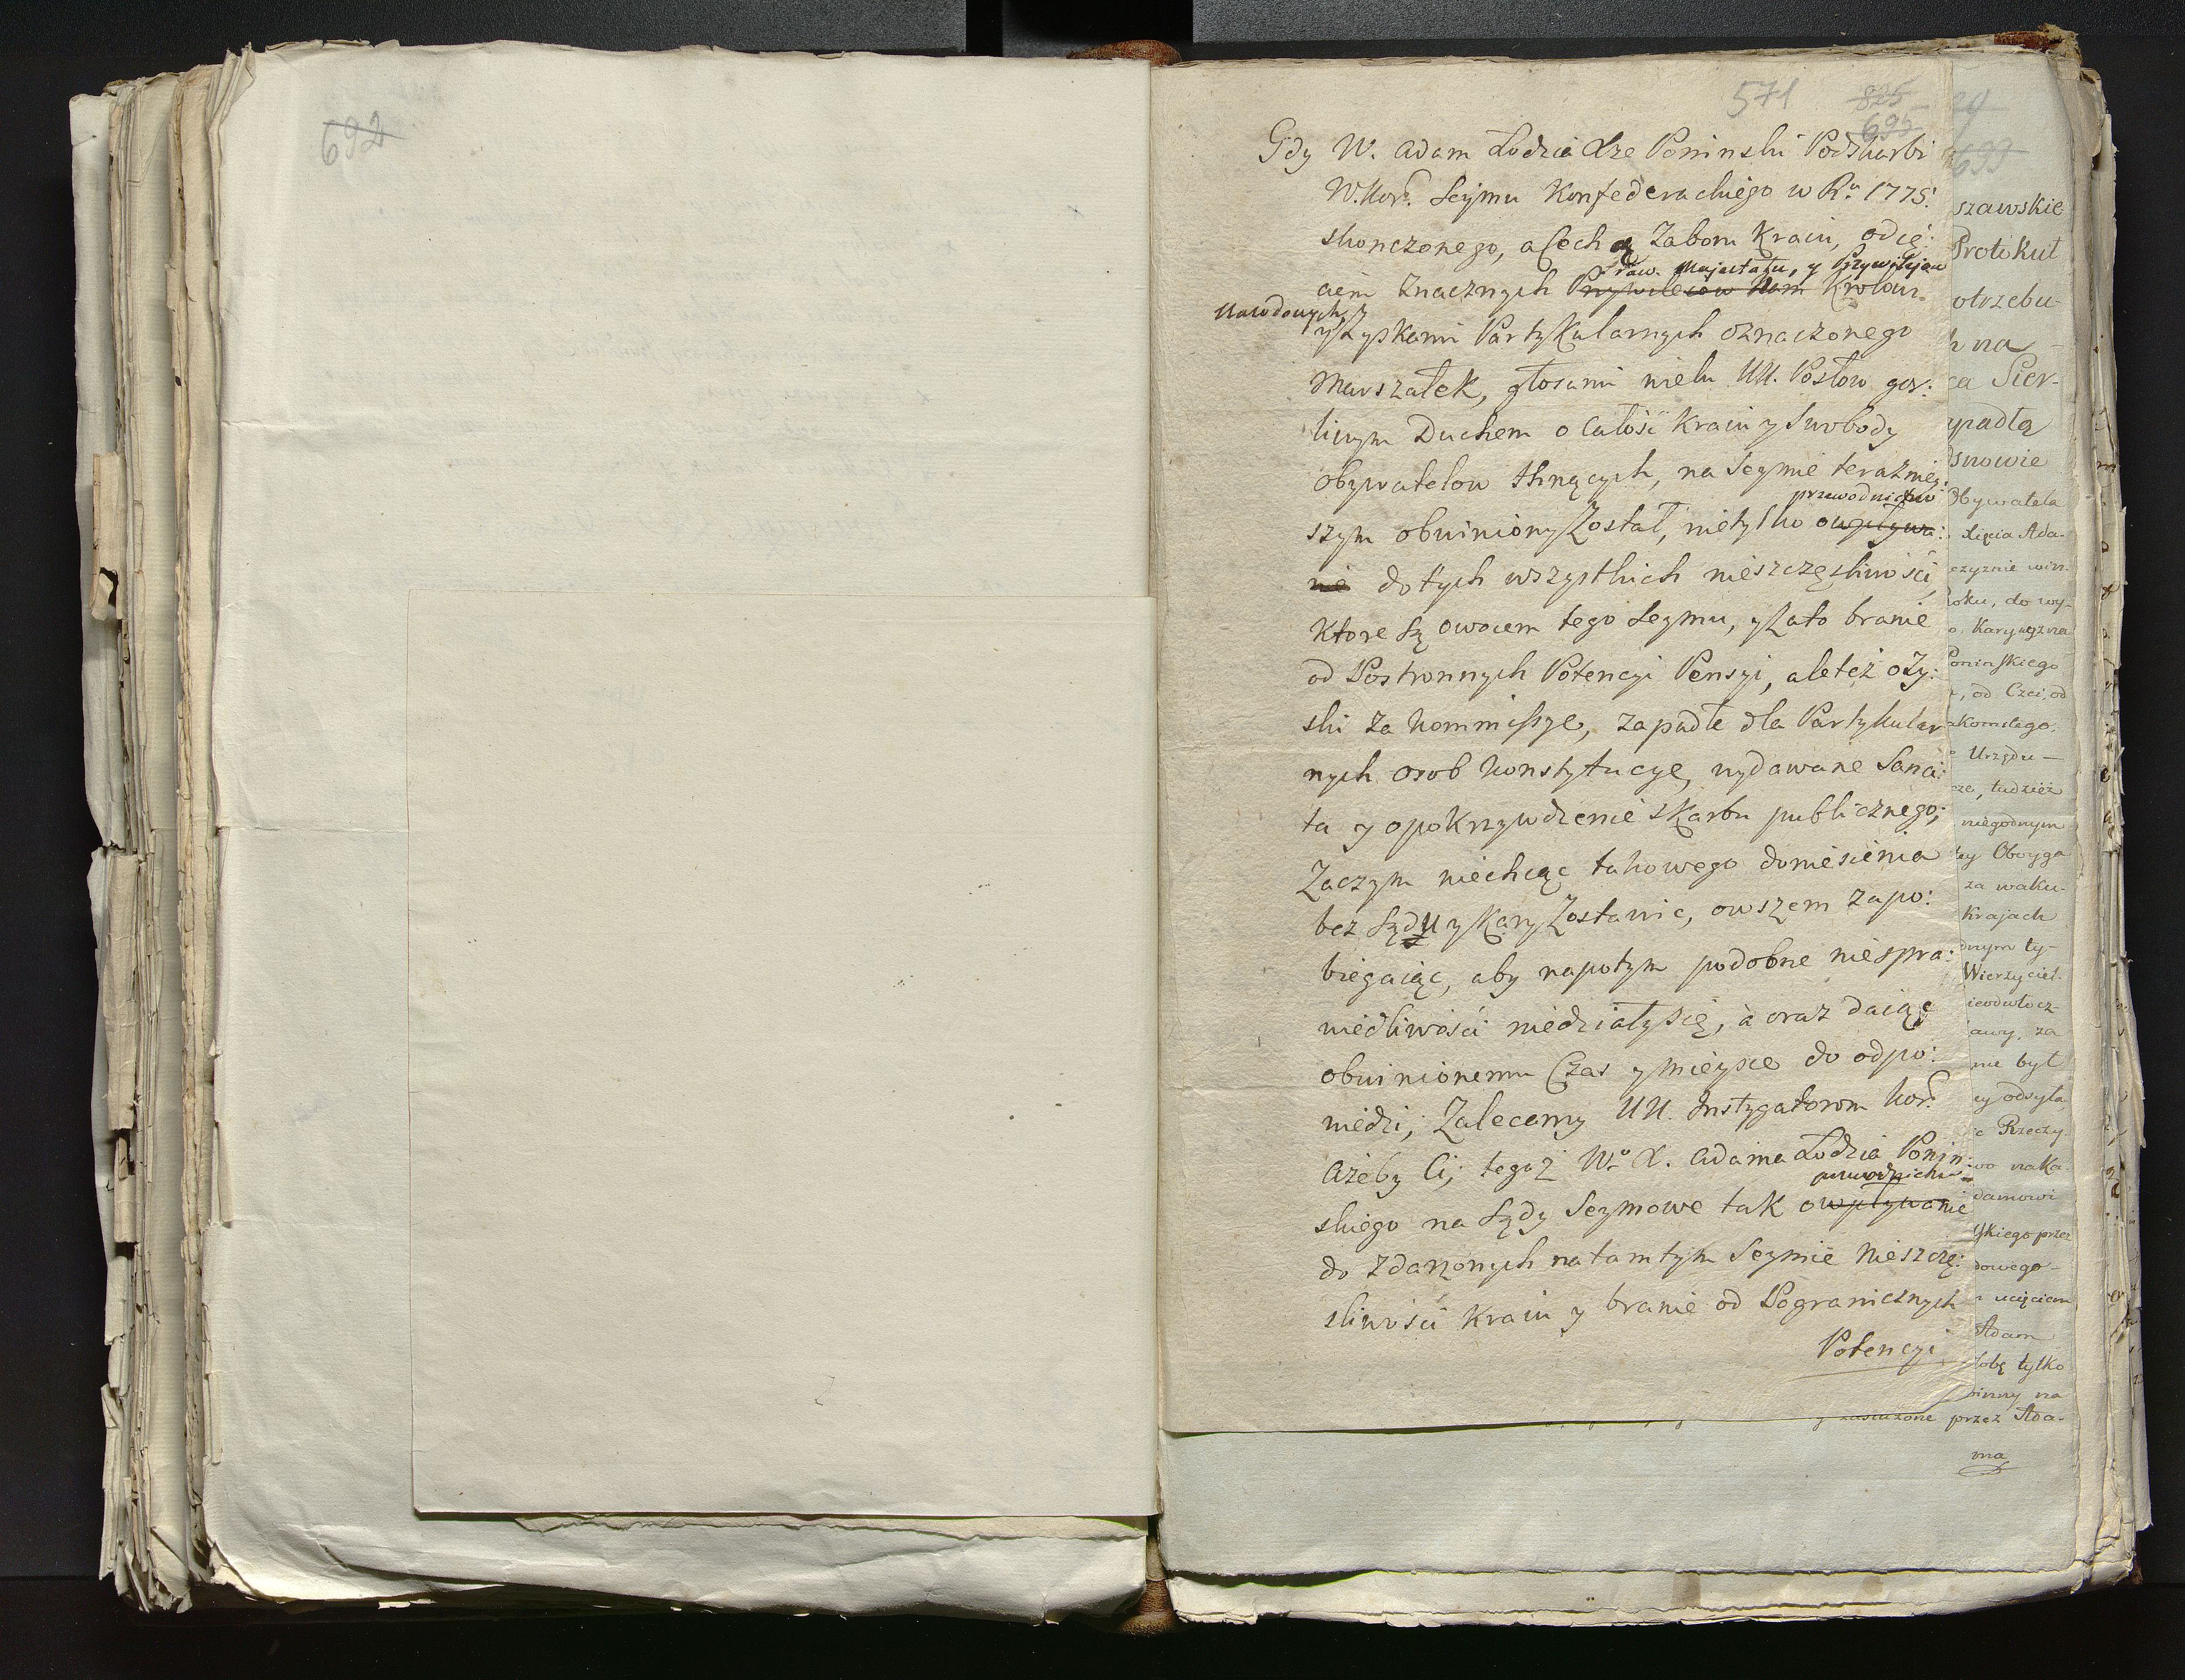 692
571
825
695
Gdy W. Adam Łodzia Xże Poninski Podskarbi
W. Kor. Seymu Konfederackiego w Ru. 1775.
skonczonego, a Cechą Zaboru Kraiu, odię:
Praw. Majestatu, y Przywilejow
ciem znacznych Przywileiow Nam Krolow:
Narodowych, y
y Zyskami Partykularnych oznaczonego
Marszałek, głosami wielu UU. Posłow gor:
liwym Duchem o całość Kraiu y Swobody
Obywatelow tknących, na Seymie teraźniey:
przewodnictwo
szym obwiniony Został, nietylko o wpływa:
nie do tych wszystkich nieszczęśliwości,
ktore są owocem tego Seymu, y Za to branie
od Postronnych Potencyi Pensyi, ale też o Zy:
ski za Kommissye, zapadłe dla Partykular
nych osob Konstytucye, wydawane Sanci:
ta y o pokrzywdzenie Skarbu publicznego;
Zaczym niechcąc takowego doniesienia
bez Sądu y Kary Zostawić, owszem zapo:
biegaiąc, aby napotym podobne niespra:
wiedliwości niedziały się, a oraz daiąc
obwinionemu Czas y mieysce do odpo:
wiedzi; Zalecamy UU. Instygatorom Kor.
Ażeby Ci, tegoż Wo. X. Adama Łodzia Ponin:
przewodnictwo
skiego na Sądy Seymowe tak o wpływanie
do zdarzonych na tamtym Seymie Nieszczę:
śliwości Kraiu y branie od Pogranicznych
Potencyi
693
szawskie
Protokuł
otrzebu-
h na
ca Sier-
ypadłą
snowie
Obywatela
Xięcia Ada-
czyznie win-
Roku, do wy-
o. Kary
Poninskiego
, od Czci, od
akomitego.
Urzędu
cze, tudzież
niegodnym
ey Oboyga
za waku-
Krajach
dnym ty-
Wierzyciel.
ieodwłocz-
awy, za
nie był
ey odsyła
c Rzeczy
wo naka-
damowi
skiego przez
dowego
ucięciem
Adam
tobę tylko
winny na
zasłużone przez Ada-
ma